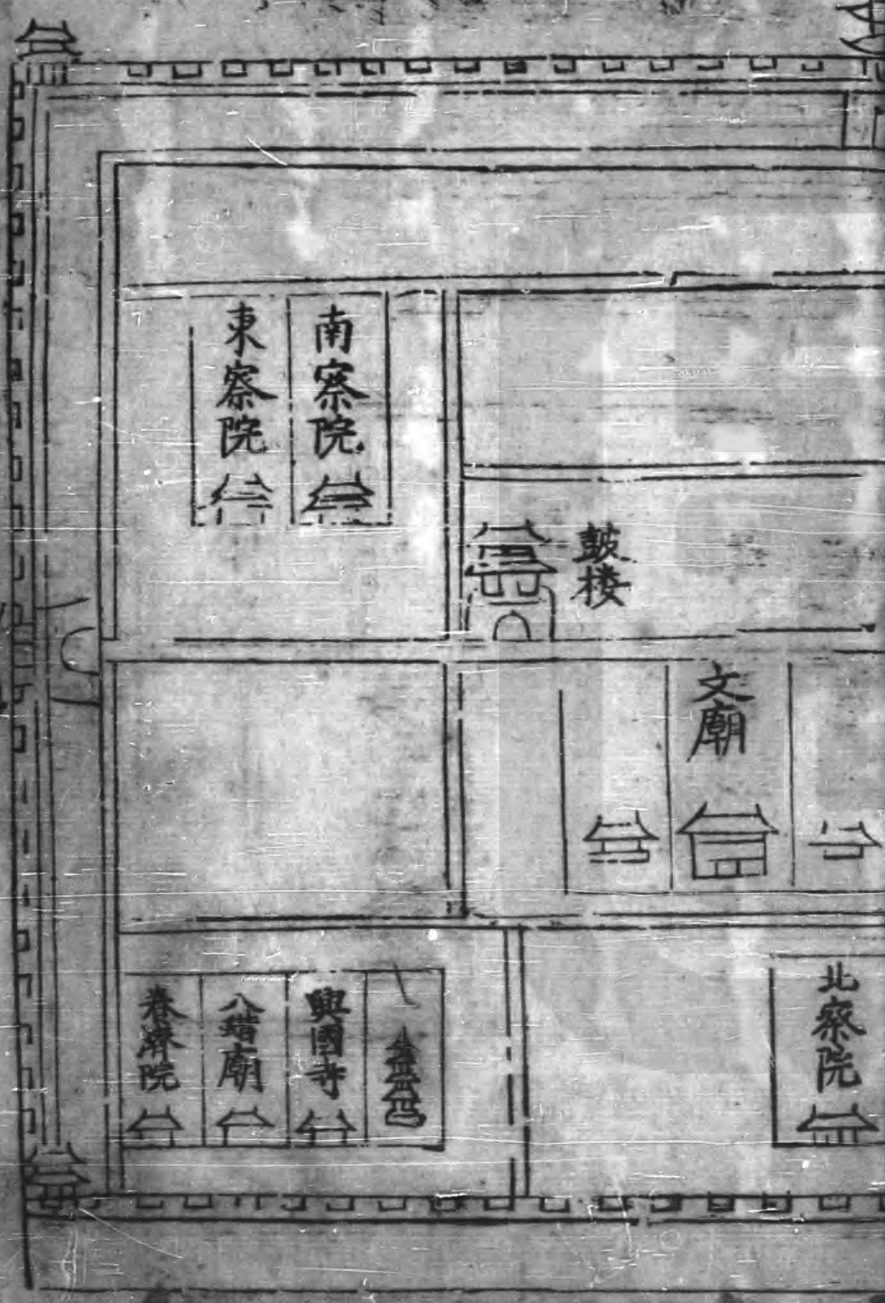 南察院
東察院
皷楼
文廟
北察院
興國寺
八蜡廟
養濟院